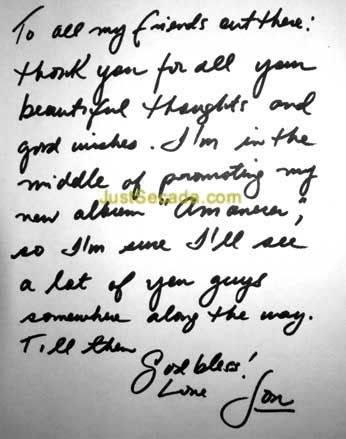 To all my friends out there:
thank you for all your
beautiful thoughts and
good wishes. I'm in the
middle of promoting my
JustSecada.com
new album "Amanecer",
so I'm sure I'll see
a lot of you guys
somewhere along the way.
Till then
God bless!
Love Jon